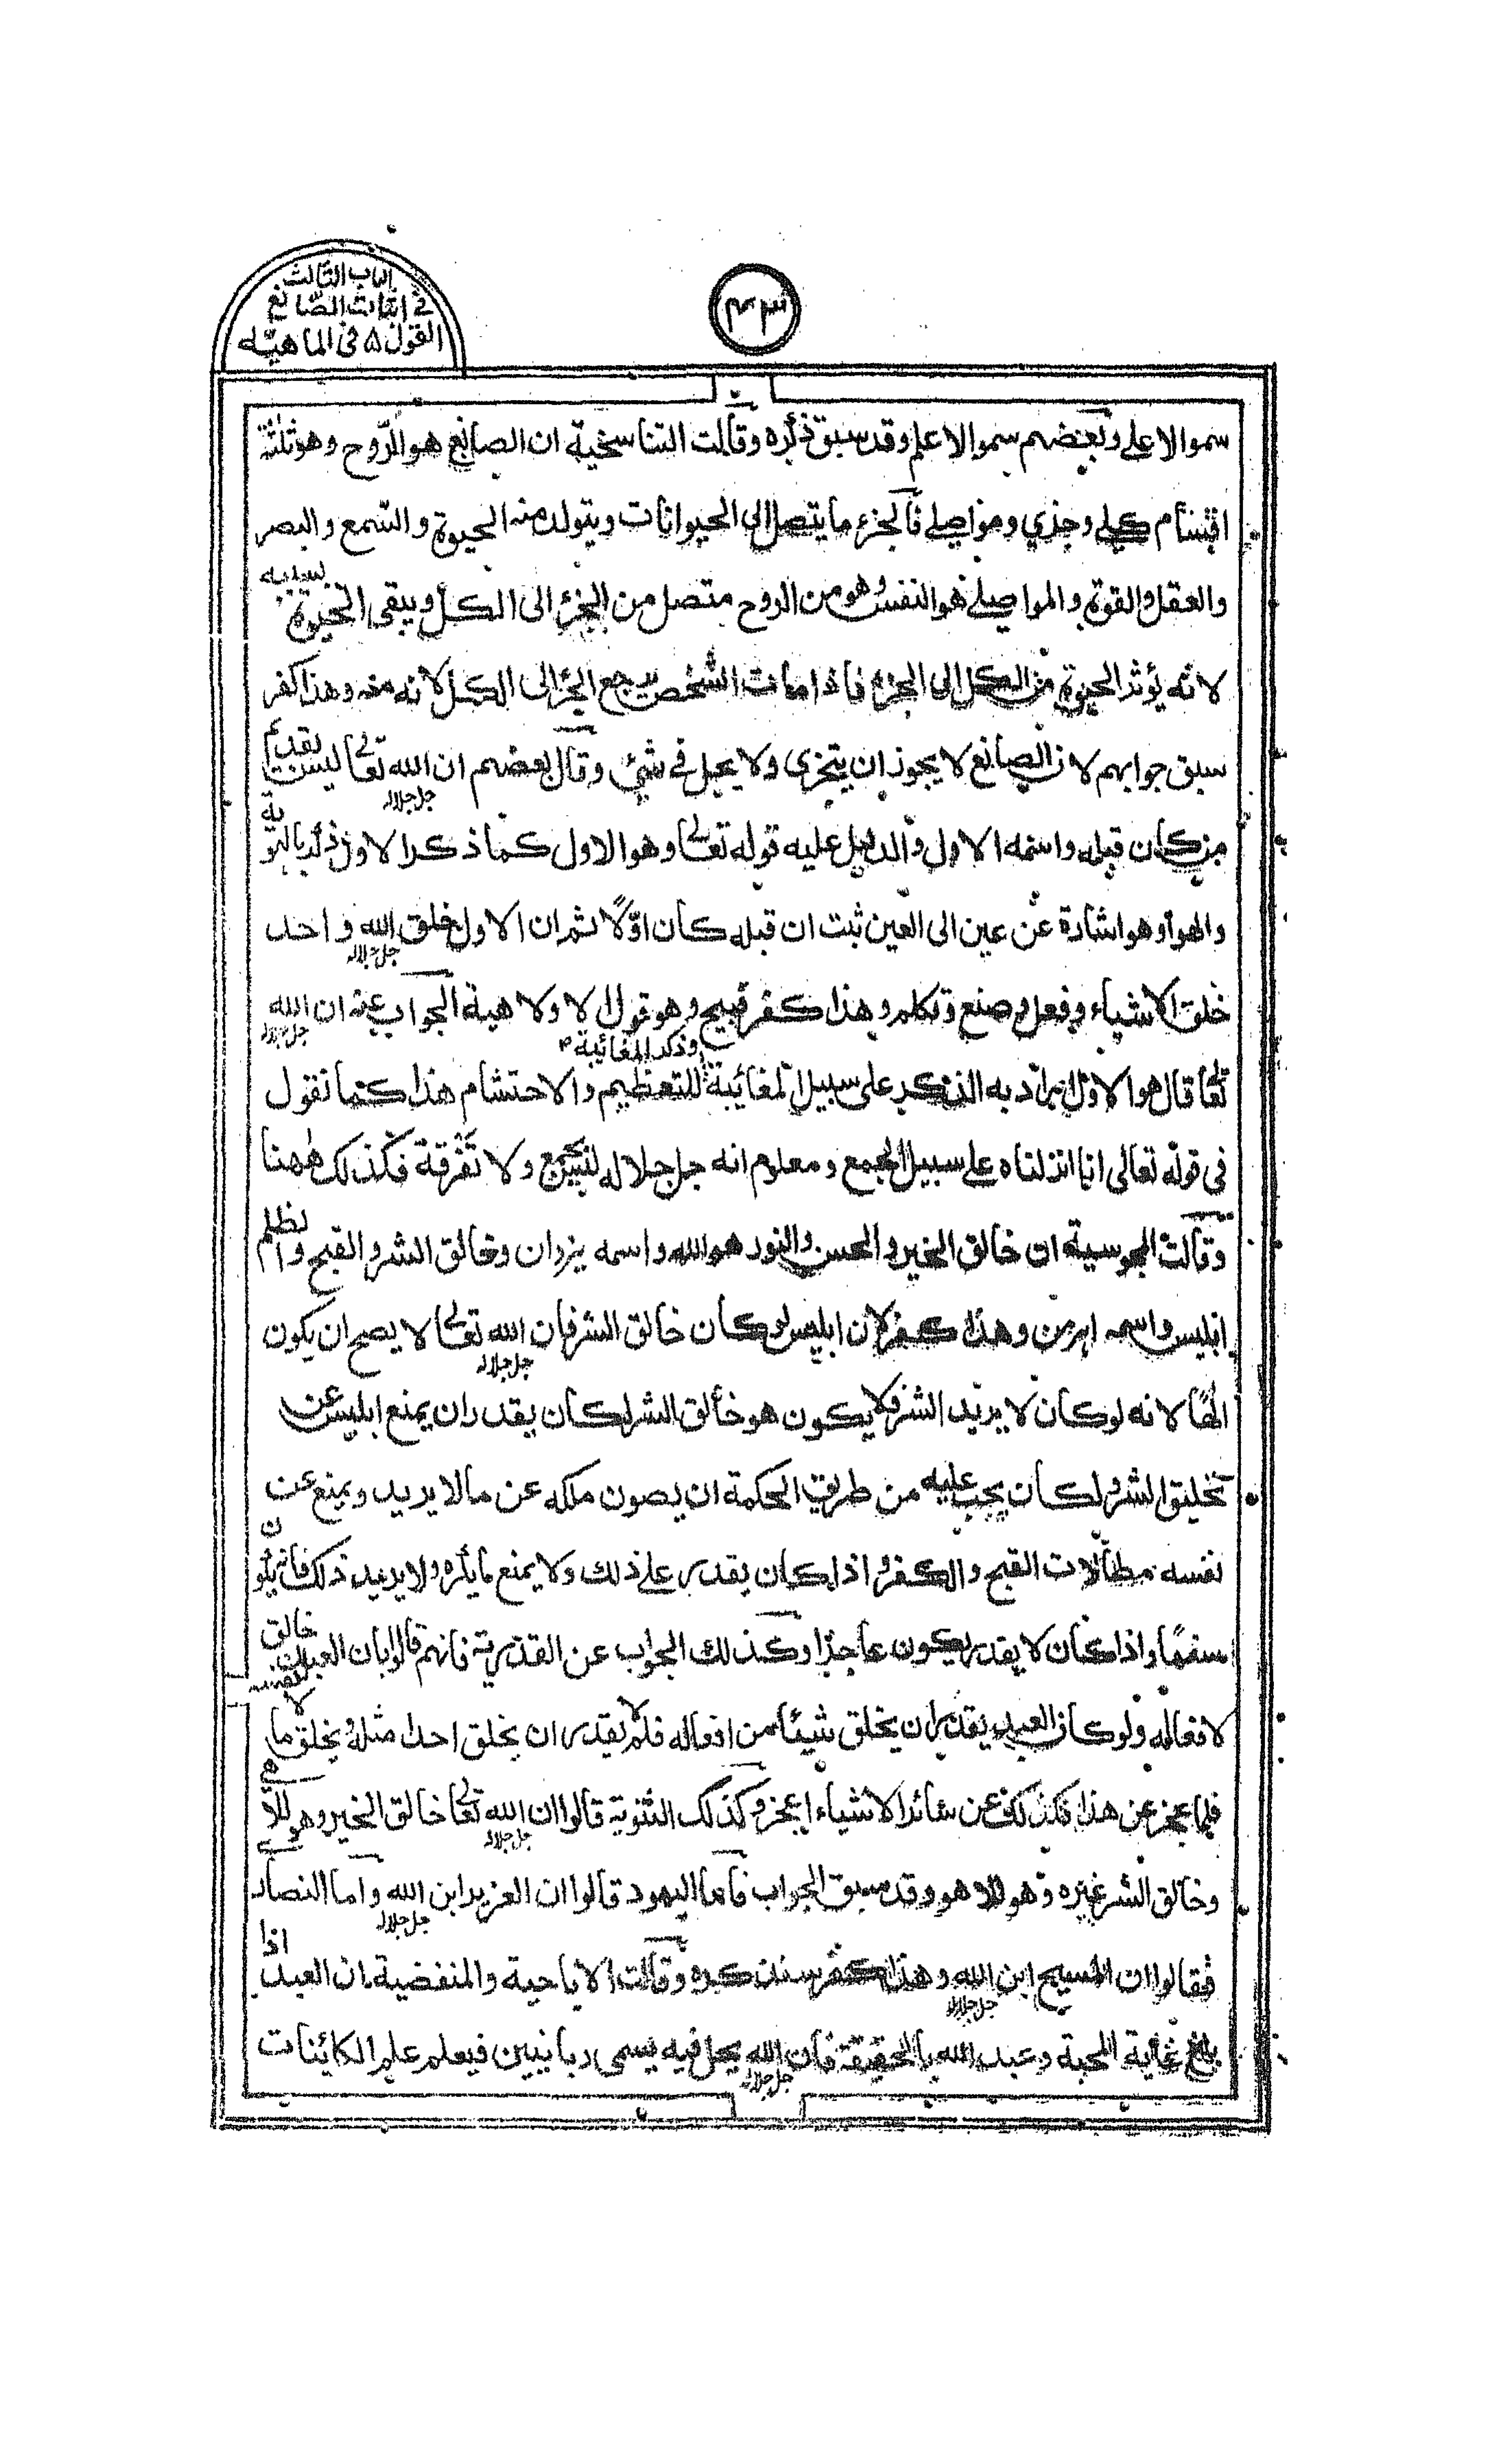 الباب الثالث
في اثبات الصّانع
القول ۵ فى الماهيّه
۴۳
سموا الاعلى وبعضهم سموا الاعلم وقد سبق ذكره وقالت التناسخية ان الصانع هو الرّوح وهو ثلثة
اقسام كلي وجزي ومواصلي فالجزء ما يتصل الى الحيوانات ويتولد منه الحيوة والسّمع والبصر
والعقل والقوة والمواصلي هو النفس وهو من الروح متصل من الجزء الى الكل ويبقى الحيوة بسببه
لانه يؤثر الحيوة من الكل الى الجزء فاذا مات الشخص يرجع الجزء الى الكل لانه منه وهذا كفر
سبق جوابهم لان الصانع لا يجوز ان يتجزى ولا يحل في شئ وقال بعضهم ان الله تعالى جل جلاله ليس بقديم
من كان قبله واسمه الاول والدليل عليه قوله تعالى وهو الاول كما ذكر الاول ذكر
والهو وهو اشارة عن عين الى العين ثبت ان قبله كان اوّلًا ثم ان الاول خلق الله جل جلاله واحد
خلق الاشياء وفعل وصنع وتكلم وهذا كفر قبيح وهو قول لا ولاهية الجواب عنه ان الله جل جلاله
تعالى قال هو الاول يراد به الذكر على سبيل المغائبة وذكر المغائبة للتعظيم والاحتشام هذا كما نقول
فى قوله تعالى انا انزلناه على سبيل الجمع ومعلوم انه جل جلاله ليس بجمع ولا تفرقة فكذلك ههنا
وقالت المجوسية ان خالق الخير والحسن والنور هو الله واسمه يزدان وخالق الشر والقبح والظلم
ابليس واسمه اهرمن وهذا كفر لان ابليس لو كان خالق الشر فان الله تعالى جل جلاله لا يصح ان يكون
الهًا لانه لو كان لا يريد الشر فلا يكون هو خالق الشر لكان يقدر ان يمنع ابليس عن
تخليق الشر ولكان يجب عليه من طريق الحكمة ان يصون ملكه عن مالا يريد ويمنع عن
نفسه مطالات القبح والكفر واذا كان يقدر على ذلك ولا يمنع ما يكره ولا يريد ذلك فانه يكون
سفهًا واذا كان لا يقدر يكون عاجزا وكذلك الجواب عن القدرية فانهم قالوا بان العبد خالق
لافعاله ولو كان العبد يقدر ان يخلق شيئا من افعاله فلم لا يقدر ان يخلق احدا مثله يخلق ما
فلما عجز عن هذا فكذلك عن سائر الاشياء اعجز وكذلك الثنوية قالوا ان الله تعالى جل جلاله خالق الخير وهو
وخالق الشر غيره وهو وقد سبق الجواب فاما اليهود قالوا ان العزير ابن الله جل جلاله واما النصار
فقالوا ان المسيح ابن الله جل جلاله وهذا كفر سنذكره وقالت الاباحية والمنفضية ان العبد اذا
بلغ غاية المحبة وعبد الله بالحقيقة فان الله جل جلاله يحل فيه يسمى ربانيين فيعلم علم الكائنات